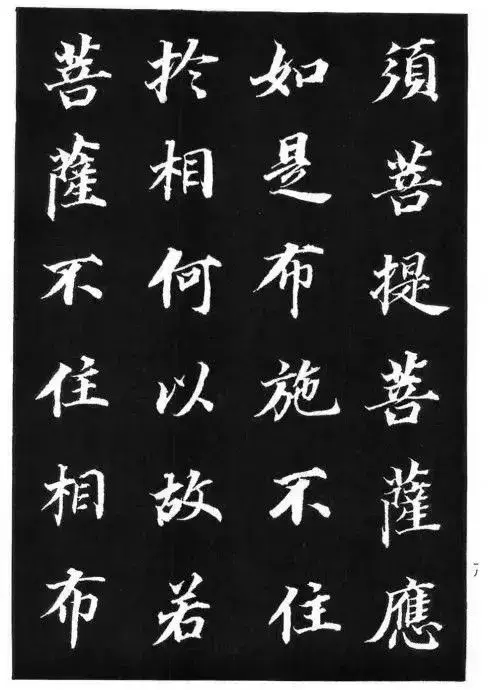 須菩提菩薩應
如是布施不住
於相何以故若
菩薩不住相布